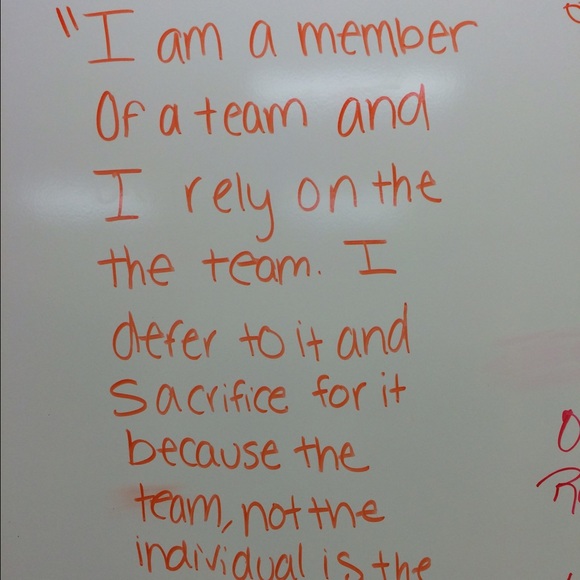 "I am a member
Of a team and
I rely on the
the team. I
defer to it and
Sacrifice for it
because the
team, not the
individual is the